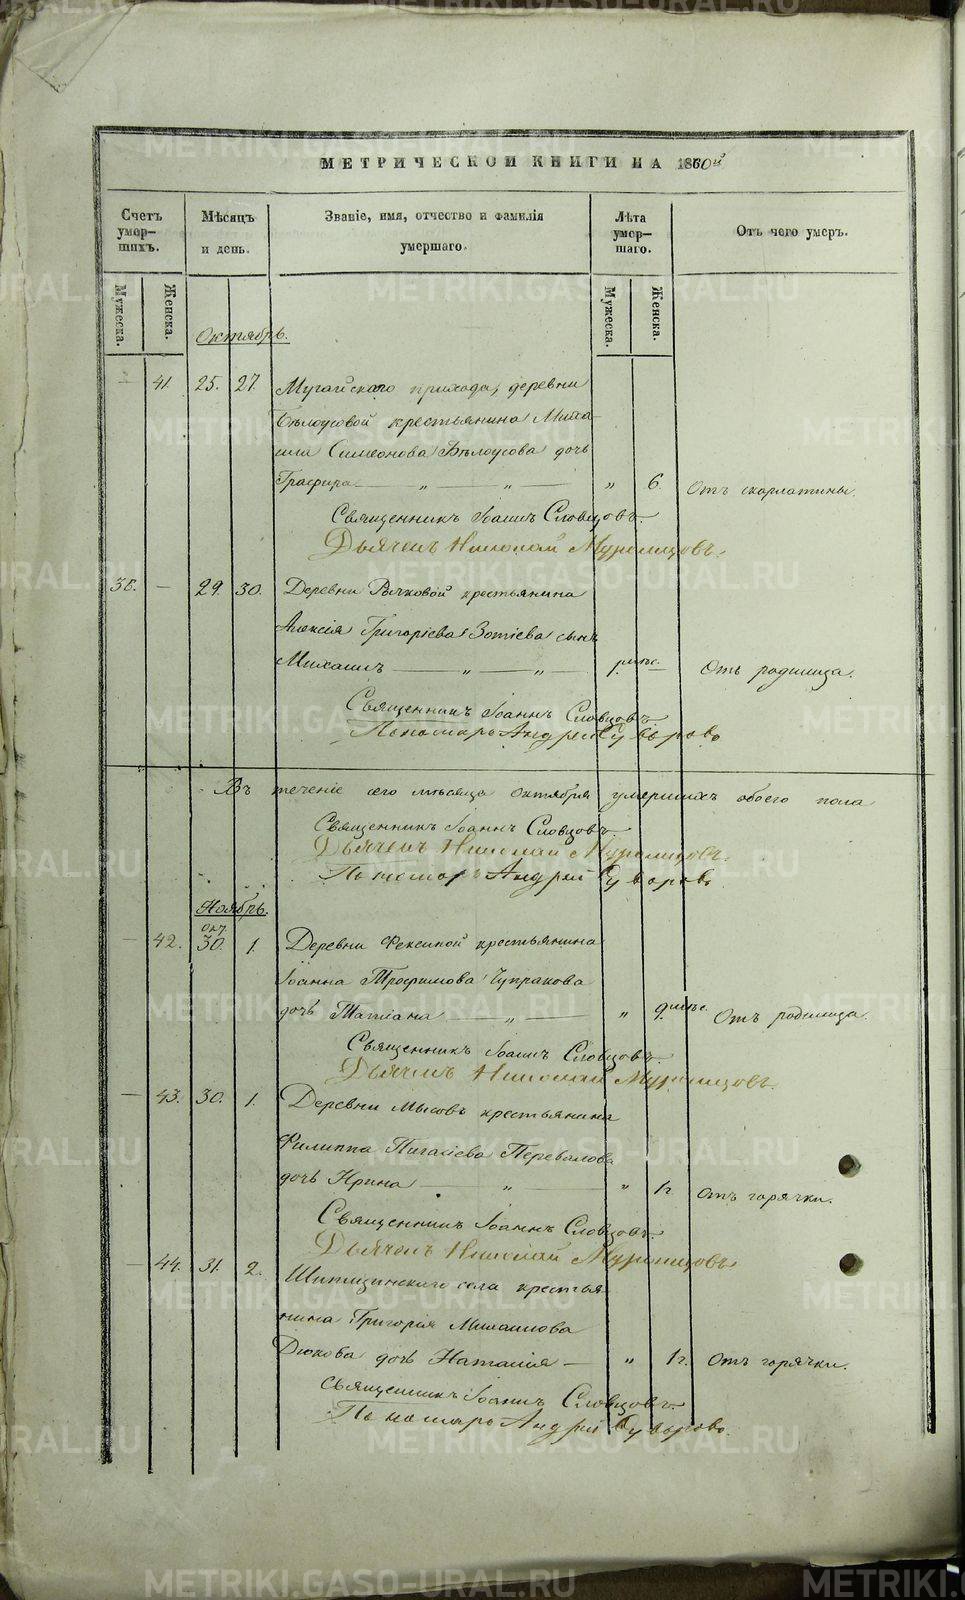 МЕТРИЧЕСКОЙ КНИГИ НА 1860й
Счетъ умер-шихъ. Мѣсяцъ и день. Званіе, имя, отчество и фамилія умершаго. Лѣта умер-шаго. Отъ чего умеръ.
Мужеска. Женска. Мужеска. Женска.
Октябрь.
— 41. 25. 27. Мугайскаго прихода, деревни
Бѣлоусовой крестьянина Миха
ила Симеонова Бѣлоусова дочь
Глафира — „ — „ — „ 6. Отъ скарлатины.
Священникъ Іоаннъ Словцовъ.
Дьячекъ Николай Муромцовъ.
38. — 29. 30. Деревни Рычковой крестьянина
Алексія Григоріева Зотіева сынъ
Михаилъ — „ — „ — 1. мѣс. — Отъ родимца.
Священникъ Іоаннъ Словцовъ.
Пономарь Андрей Суворовъ
Въ теченіе сего мѣсяца октября умершихъ обоего пола
Священникъ Іоаннъ Словцовъ.
Дьячекъ Николай Муромцовъ.
Пономарь Андрей Суворовъ
Ноябрь.
— 42. Окт. 30. 1. Деревни Фекиной крестьянина
Іоанна Трофимова Чупракова
дочь Татіана — „ — „ 9. мѣс. Отъ родимца.
Священникъ Іоаннъ Словцовъ.
Дьячекъ Николай Муромцовъ.
— 43. 30. 1. Деревни Мысовъ крестьянина
Филиппа Перевалова
дочь Ирина — „ — „ 1 г. Отъ горячки.
Священникъ Іоаннъ Словцовъ.
Дьячекъ Николай Муромцовъ
— 44. 31. 2. Шипицинскаго села крестья
нина Григорія Михаилова
Дюкова дочь Наталия — „ 1 г. Отъ горячки.
Священникъ Іоаннъ Словцовъ.
Пономарь Андрей Суворовъ.
METRIKI.GASO-URAL.RU